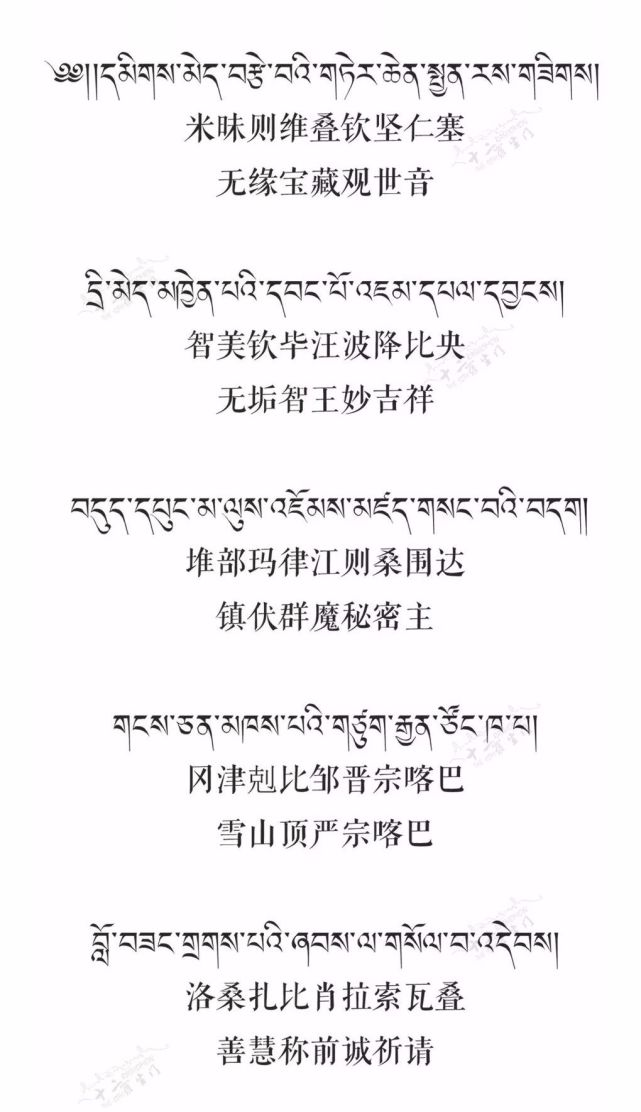 ༄༅།།དམིགས་མེད་བརྩེ་བའི་གཏེར་ཆེན་སྤྱན་རས་གཟིགས།
米昧则维叠钦坚仁塞
无缘宝藏观世音
དྲི་མེད་མཁྱེན་པའི་དབང་པོ་འཇམ་དཔལ་དབྱངས།
智美钦毕汪波降比央
无垢智王妙吉祥
བདུད་དཔུང་མ་ལུས་འཇོམས་མཛད་གསང་བའི་བདག།
堆部玛律江则桑围达
镇伏群魔秘密主
གངས་ཅན་མཁས་པའི་གཙུག་རྒྱན་ཙོང་ཁ་པ།
冈津剋比邹晋宗喀巴
雪山顶严宗喀巴
བློ་བཟང་གྲགས་པའི་ཞབས་ལ་གསོལ་བ་འདེབས།
洛桑扎比肖拉索瓦叠
善慧称前诚祈请